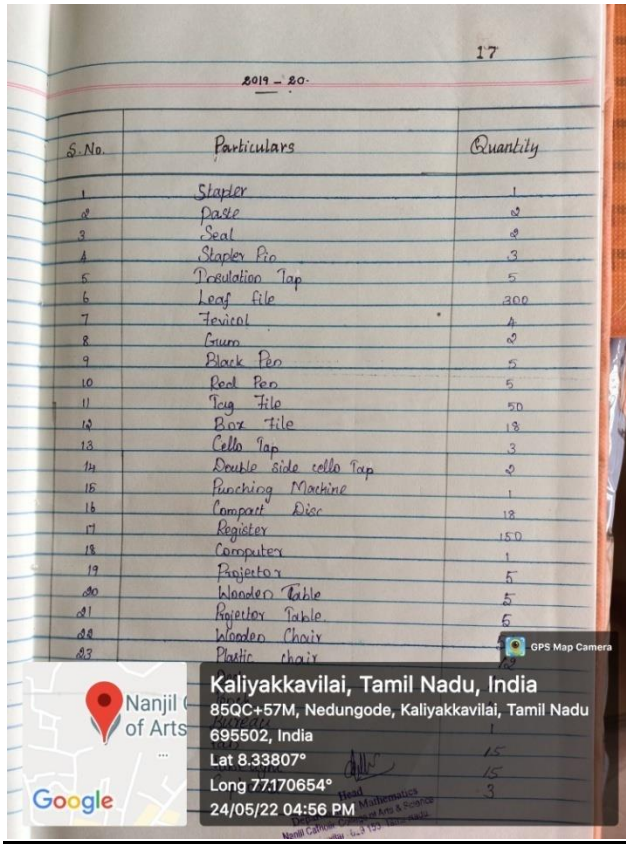 17
2019 - 20.
S. No. Particulars Quantity
1 Stapler 1
2 Paste 2
3 Seal 2
4 Stapler Pin 3
5 Insulation Tap 5
6 Leaf file 300
7 Fevicol 4
8 Gum 2
9 Black Pen 5
10 Red Pen 5
11 Tag File 50
12 Box File 18
13 Cello Tap 3
14 Double side cello Tap 2
15 Punching Machine 1
16 Compact Disc 18
17 Register 150
18 Computer 1
19 Projector 5
20 Wooden Table 5
21 Projector Table. 5
22 Wooden Chair
23 Plastic chair
GPS Map Camera
Kaliyakkavilai, Tamil Nadu, India
85QC+57M, Nedungode, Kaliyakkavilai, Tamil Nadu
695502, India
Lat 8.33807°
Long 77.170654°
24/05/22 04:56 PM
Nanjil
of Arts
Google
Bureau 1
15
15
3
Head
Mathematics